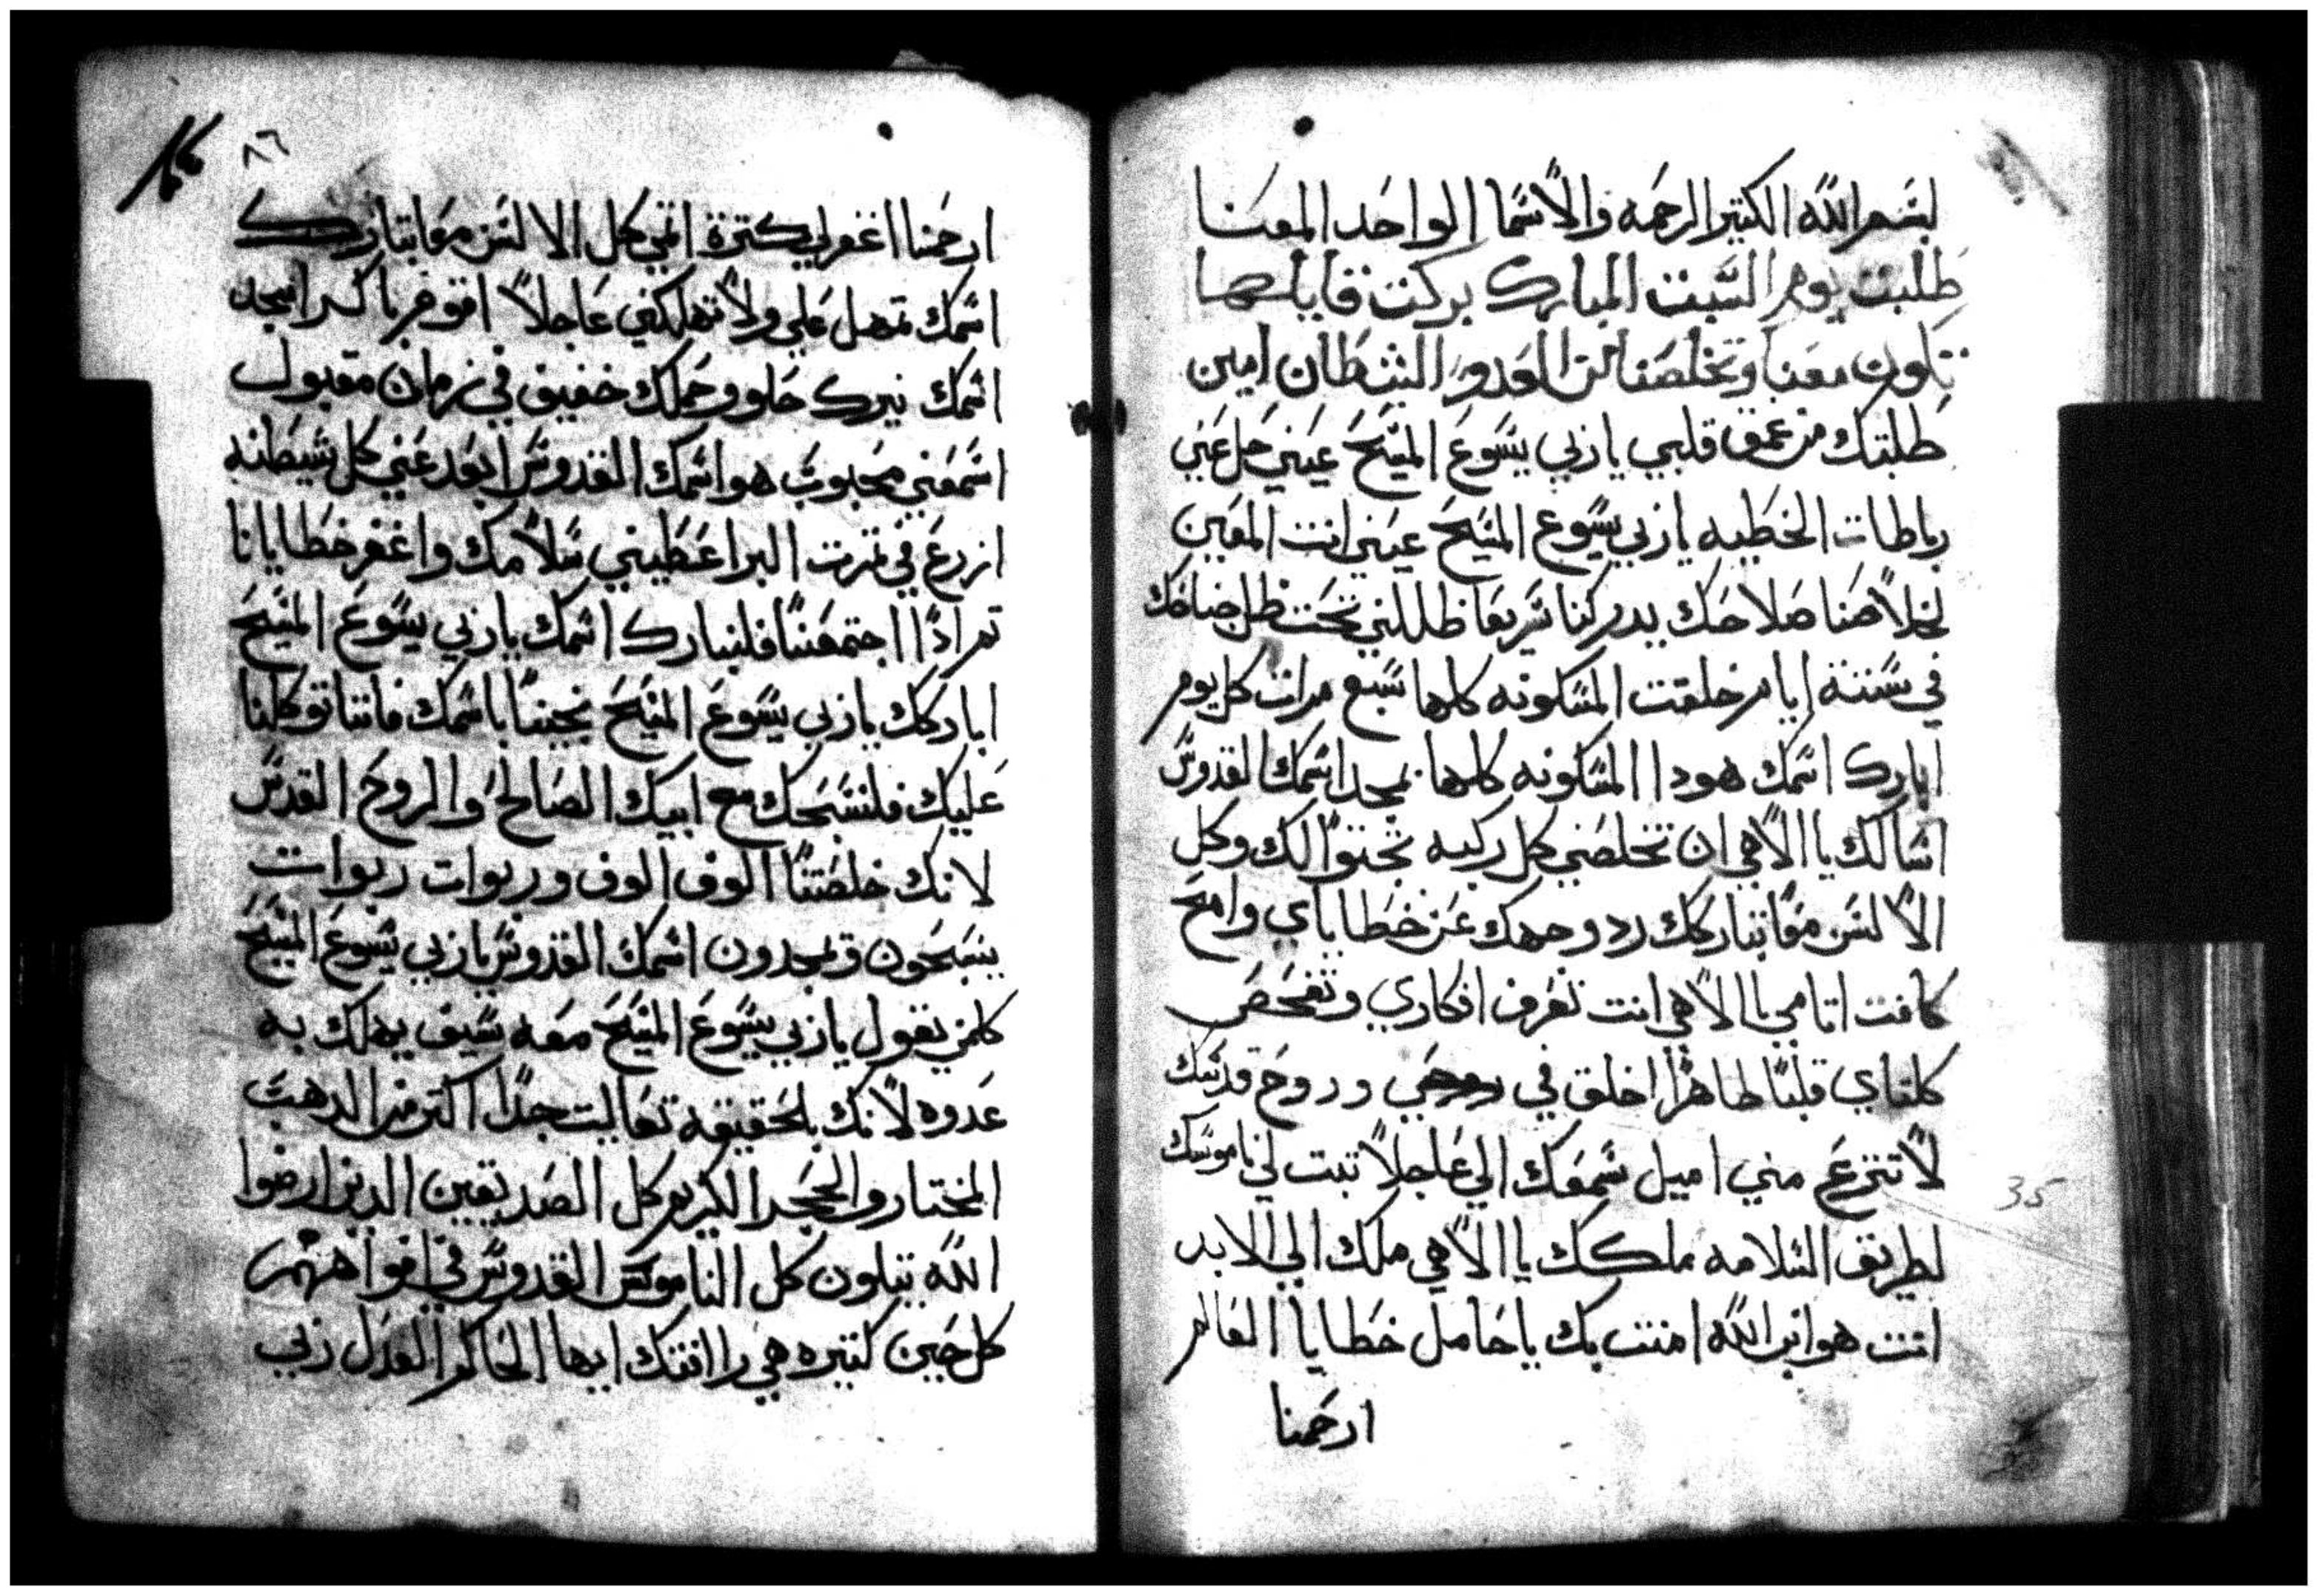 بسم الله الكتير الرحمه والاسما الواحد المعنا
طلبت يوم السبت المبارك بركت قايلها
تكون معنا وتخلصنا من العدو الشيطان امين
طلبتك من عمق قلبي ياربي يسوع المسيح عيني حل عني
رباطات الخطيه ياربي يسوع المسيح عيني انت المعين
لخلاصنا صلاحك يدركنا سريعا ظللني تحت ظل جناحك
في ستة ايام خلقت المسكونه كلها سبع مرات كل يوم
ابارك اسمك هودا المسكونه كلها تمجد اسمك القدوس
اسالك يا الاهي ان تخلصني كل ركبه تجتوا لك وكل
الالسن معا تباركك رد وجهك عن خطاياي وامح
كافت اتامي يا الاهي انت تعرف افكاري وتفحص
كلتاي قلبا طاهرا اخلق في روحي وروح قدسك
لا تنزع مني اميل سمعك الي عاجلا تبت لي ناموسك
لطريق السلامه ملكك يا الاهي ملك الي الابد
انت هو ابن الله امنت بك يا حامل خطايا العالم
ارحمنا
٨٦
ارحمنا اغفر لي كترة اتمي كل الالسن معا تبارك
اسمك تمهل علي ولا تهلكني عاجلا اقوم باكر امجد
اسمك نيرك حلو وحملك خفيف في زمان مقبول
اسمعني محبوب هو اسمك القدوس ابعد عني كل شيطنه
ازرع في تمرت البر اعطيني سلامك واغفر خطايانا
تم اذا اجتمعنا فلنبارك اسمك ياربي يسوع المسيح
اباركك ياربي يسوع المسيح نجينا باسمك فاننا توكلنا
عليك فلنسبحك مع ابيك الصالح والروح القدس
لانك خلصتنا الوف الوف وربوات ربوات
يسبحون ويمجدون اسمك القدوس ياربي يسوع المسيح
كلمن يقول ياربي يسوع المسيح معه سيف يهلك به
عدوه لانك بلحقيقه تعاليت جدا اكتر من الدهب
المختار والحجر الكريم كل الصديقين الدين ارضوا
الله يتلون كل الناموس القدوس في افواههم
كل حين كتيره هي رافتك ايها الحاكم العدل ربي
35